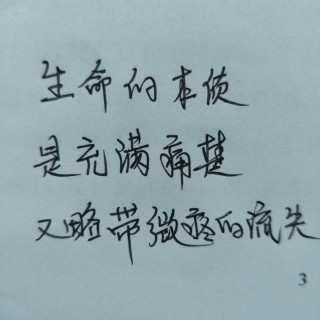 生命的本质
是充满痛楚
又略带微疼的流失
3